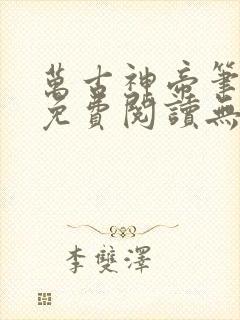 萬古神帝筆
免費閱讀無
李雙澤